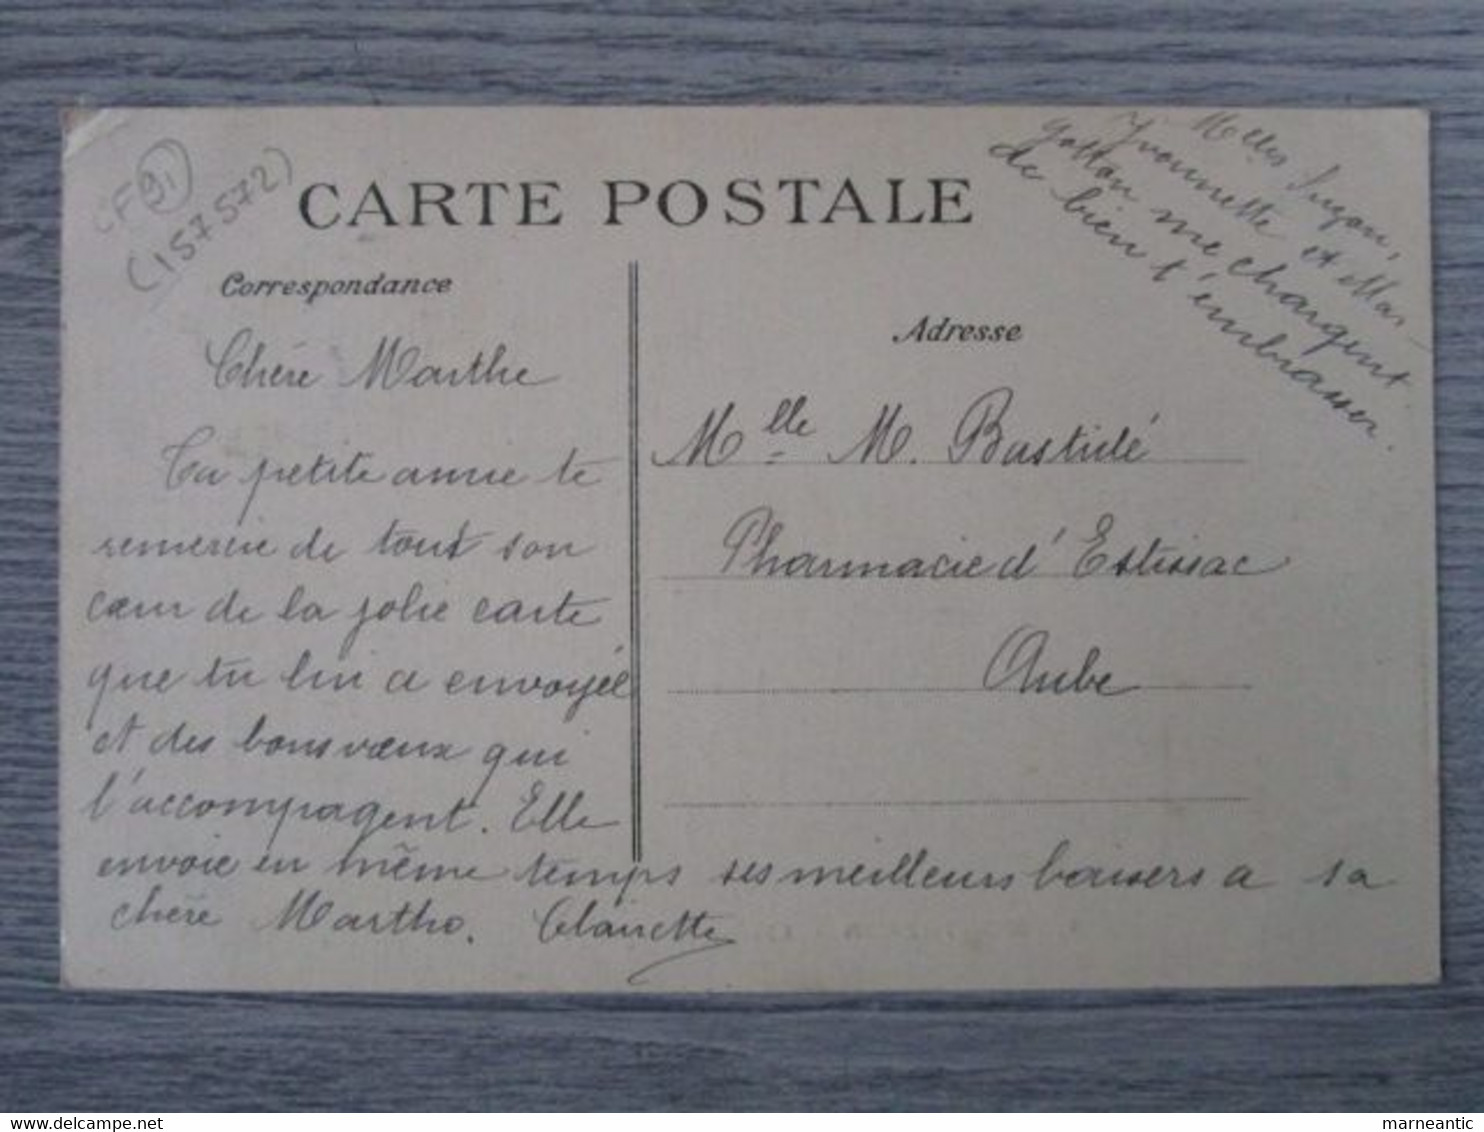 CF (91)
(157572)
CARTE POSTALE
Melles Suzon,
Yvonnette et Mar-
gotton me chargent
de bien t'embrasser.
Correspondance
Chère Marthe
Ta petite amie te
remercie de tout son
cœur de la jolie carte
que tu lui a envoyée
et des bons vœux qui
l'accompagent. Elle
envoie en même temps ses meilleurs baisers a sa
chère Martho. Clairette
Adresse
Mlle M. Bastidé
Pharmacie d'Estissac
Aube
delcampe.net
marneantic